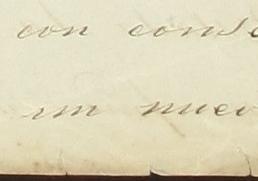 con conse
un nuev